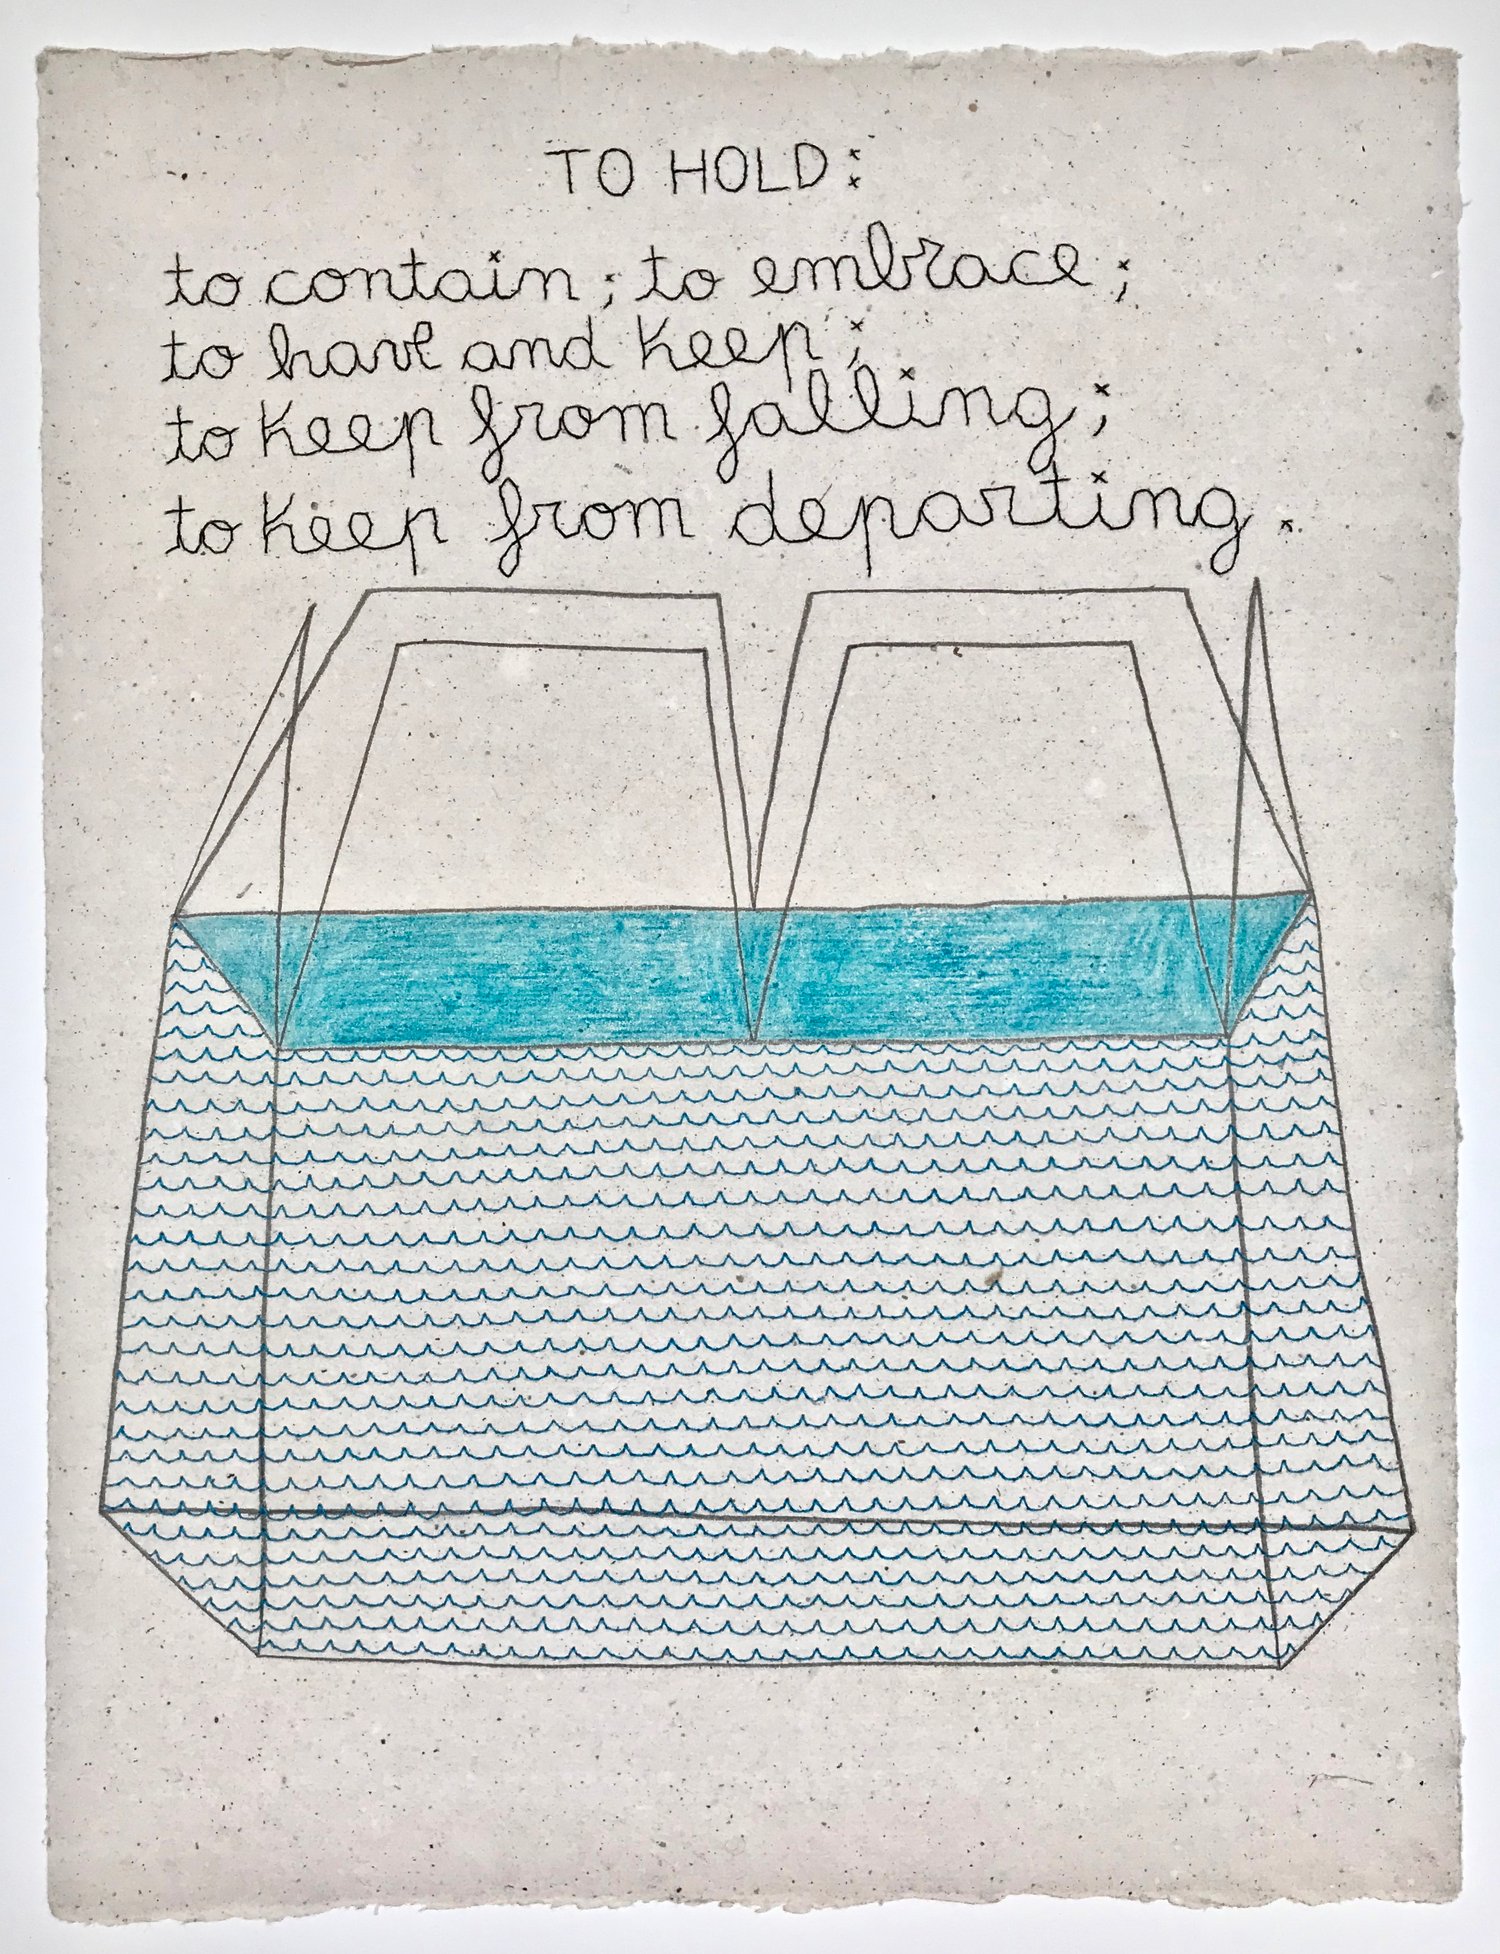 TO HOLD:
to contain; to embrace;
to have and keep;
to keep from falling;
to keep from departing.